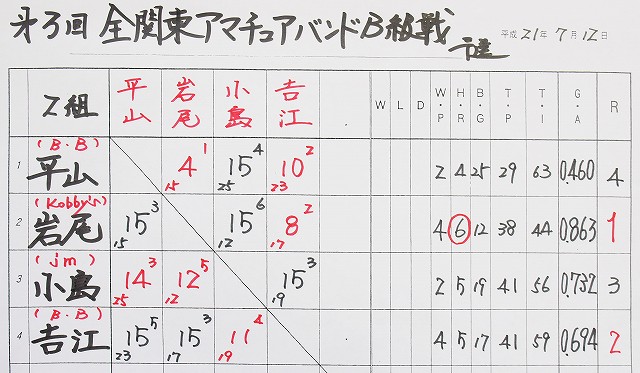 第3回 全関東アマチュアバンドB級戦 予選 平成21年7月12日
Z組 平山 岩尾 小島 吉江 W L D W・P H・R B・G T・P T・I G・A R
1 (B.B) 平山 4 1 15 15 4 25 10 2 23 2 4 25 29 63 0.460 4
2 (Kobby's) 岩尾 15 3 15 15 6 12 8 2 17 4 6 12 38 44 0.863 1
3 (jm) 小島 14 3 25 12 5 12 15 3 19 2 5 19 41 56 0.732 3
4 (B.B) 吉江 15 5 23 15 3 17 11 4 19 4 5 17 41 59 0.694 2